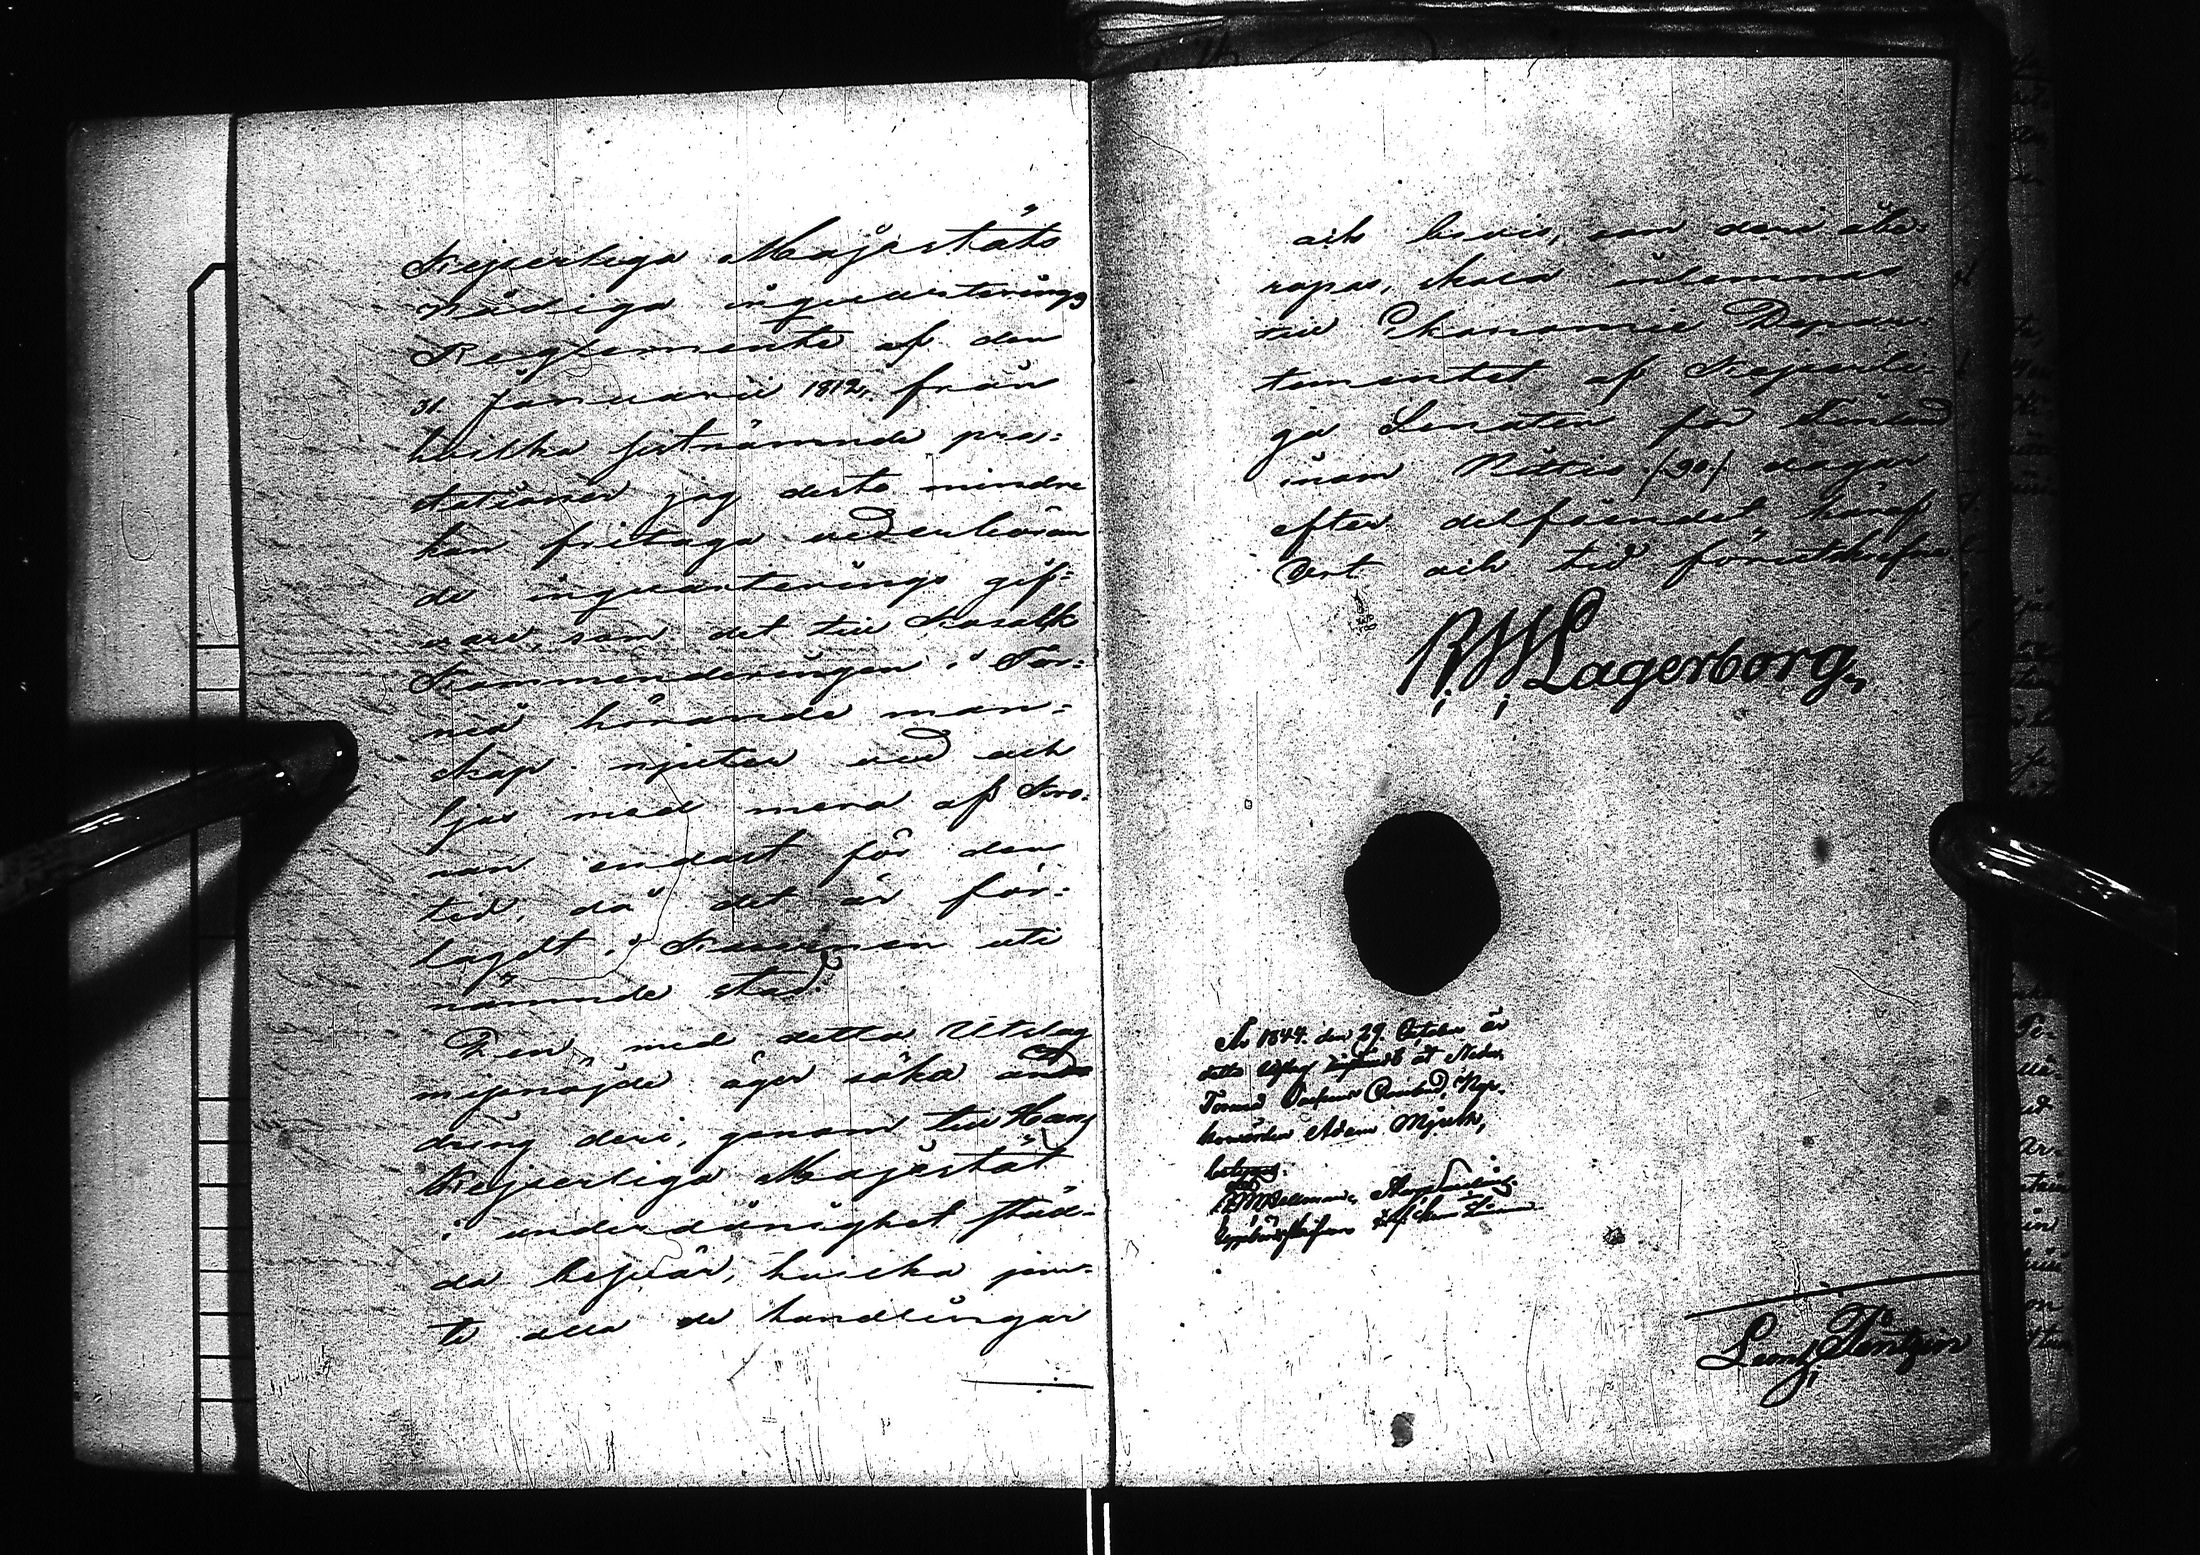 Kejserliga Majestäts
Nådiga inqvarterings
Reglemente af den
31 Januarii 1812, från
hvilka sistnämnde præ-
stationer jag desto mindre
kan fritaga vederböran
de inquarterings gif-
vare, som det till Kosack
Kommenderingen i Tor-
neå hörande man-
skap njuter ved och
ljus med mera af Kro-
nan endast för den
tid, då det är för-
lagdt i Kasernen uti
nämnde stad.
Den, med detta Utslag
missnöjde äger söka änd
dring deri, genom till Hans
Kejserliga Majestät
i underdånighet ställ-
da besvär, hvilka jem-
te alla de handlingar
och bevis, som deri åbe-
ropas, skola inlemnas
till Ekonomie Depar-
tementet af Kejserli-
ga Senaten för Finland
inom Nittio (90) dagar
efter delfåendet häraf
Ort och tid förutskrefne
R. W. Lagerborg.
År 1844. den 29. October är
detta Utslag åt Neder
Torneå Sockens Ombud, Ny-
Adam
Lennj